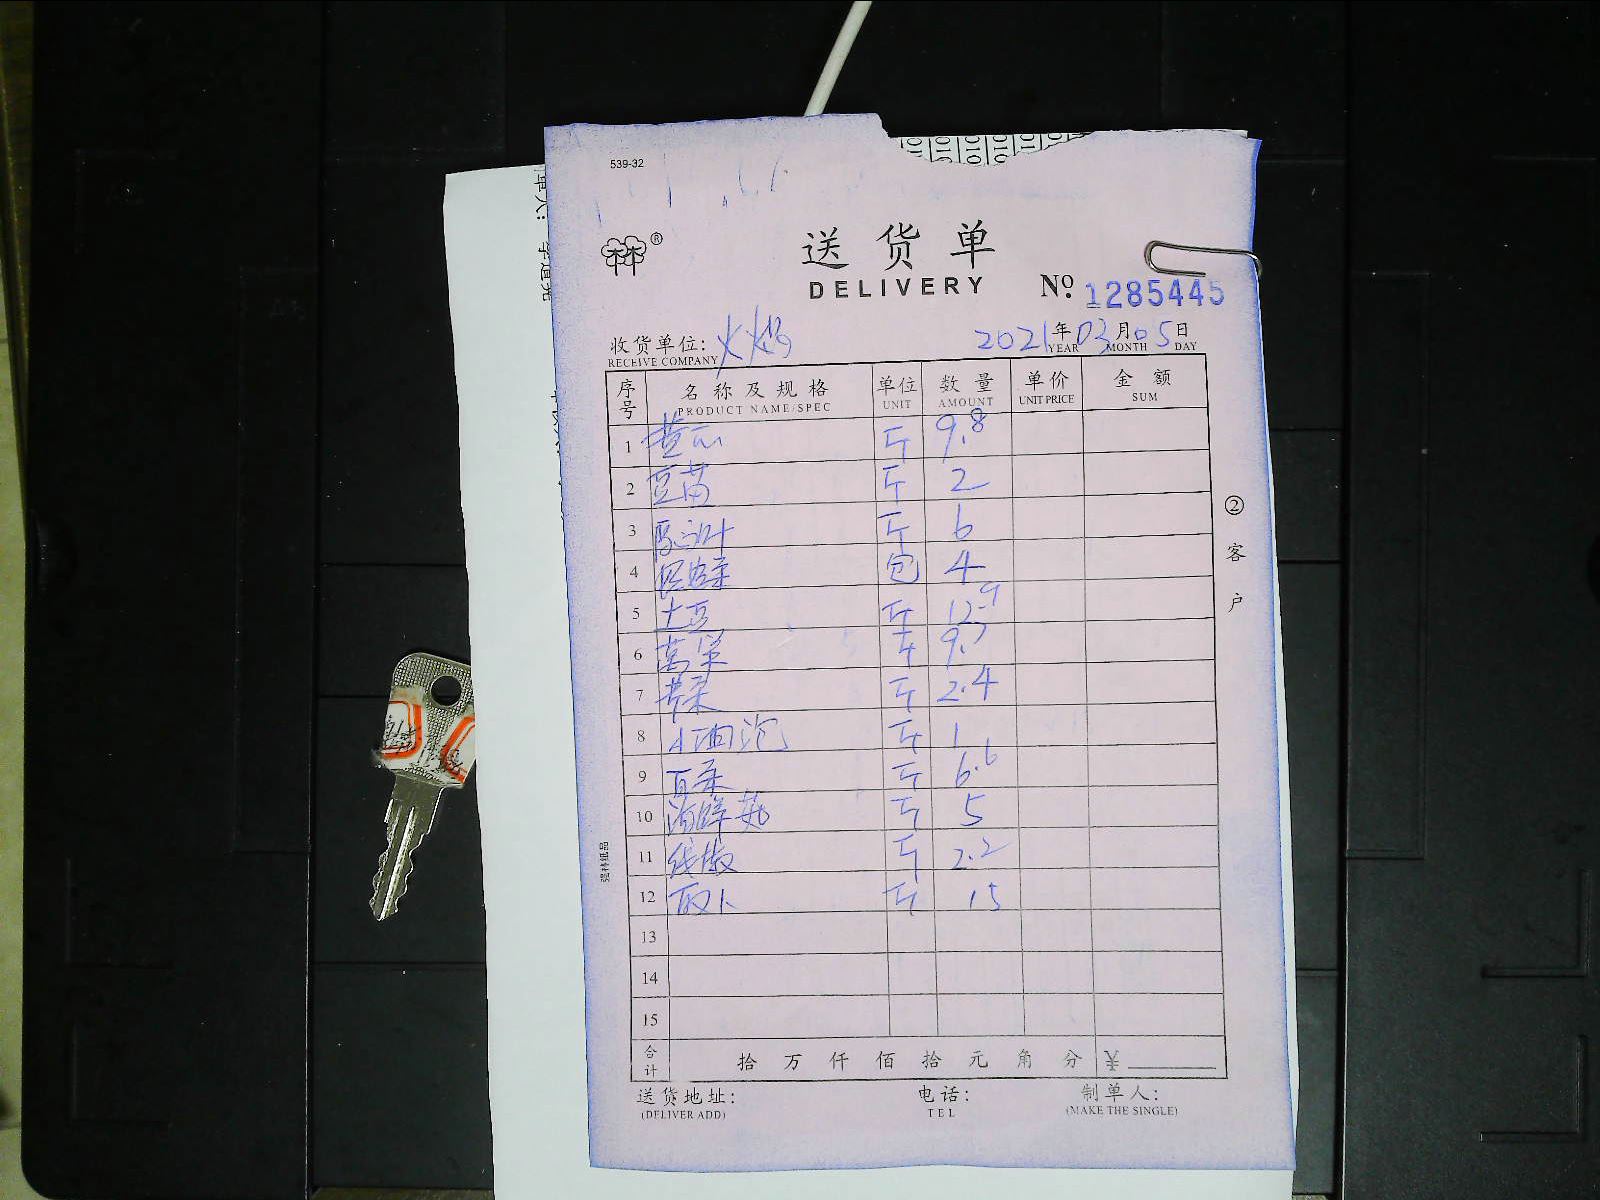 539-32
送货单
DELIVERY
№ 1285445
收货单位: 火焰 2021年03月05日
RECEIVE COMPANY YEAR MONTH DAY
序号 名称及规格 单位 数量 单价 金额
PRODUCT NAME/SPEC UNIT AMOUNT UNIT PRICE SUM
1 黄心 斤 9.8
2 豆苗 斤 2
3 斤 6
4 包 4
5 土豆 斤 12.9
6 斤 9.7
7 斤 2.4
8 小油泡 斤 1
9 斤 6.6
10 海鲜菇 斤 5
11 线椒 斤 2.2
12 斤 15
13
14
15
合计 拾万仟佰拾元角分 ¥
送货地址: 电话: 制单人:
(DELIVER ADD) TEL (MAKE THE SINGLE)
②客户